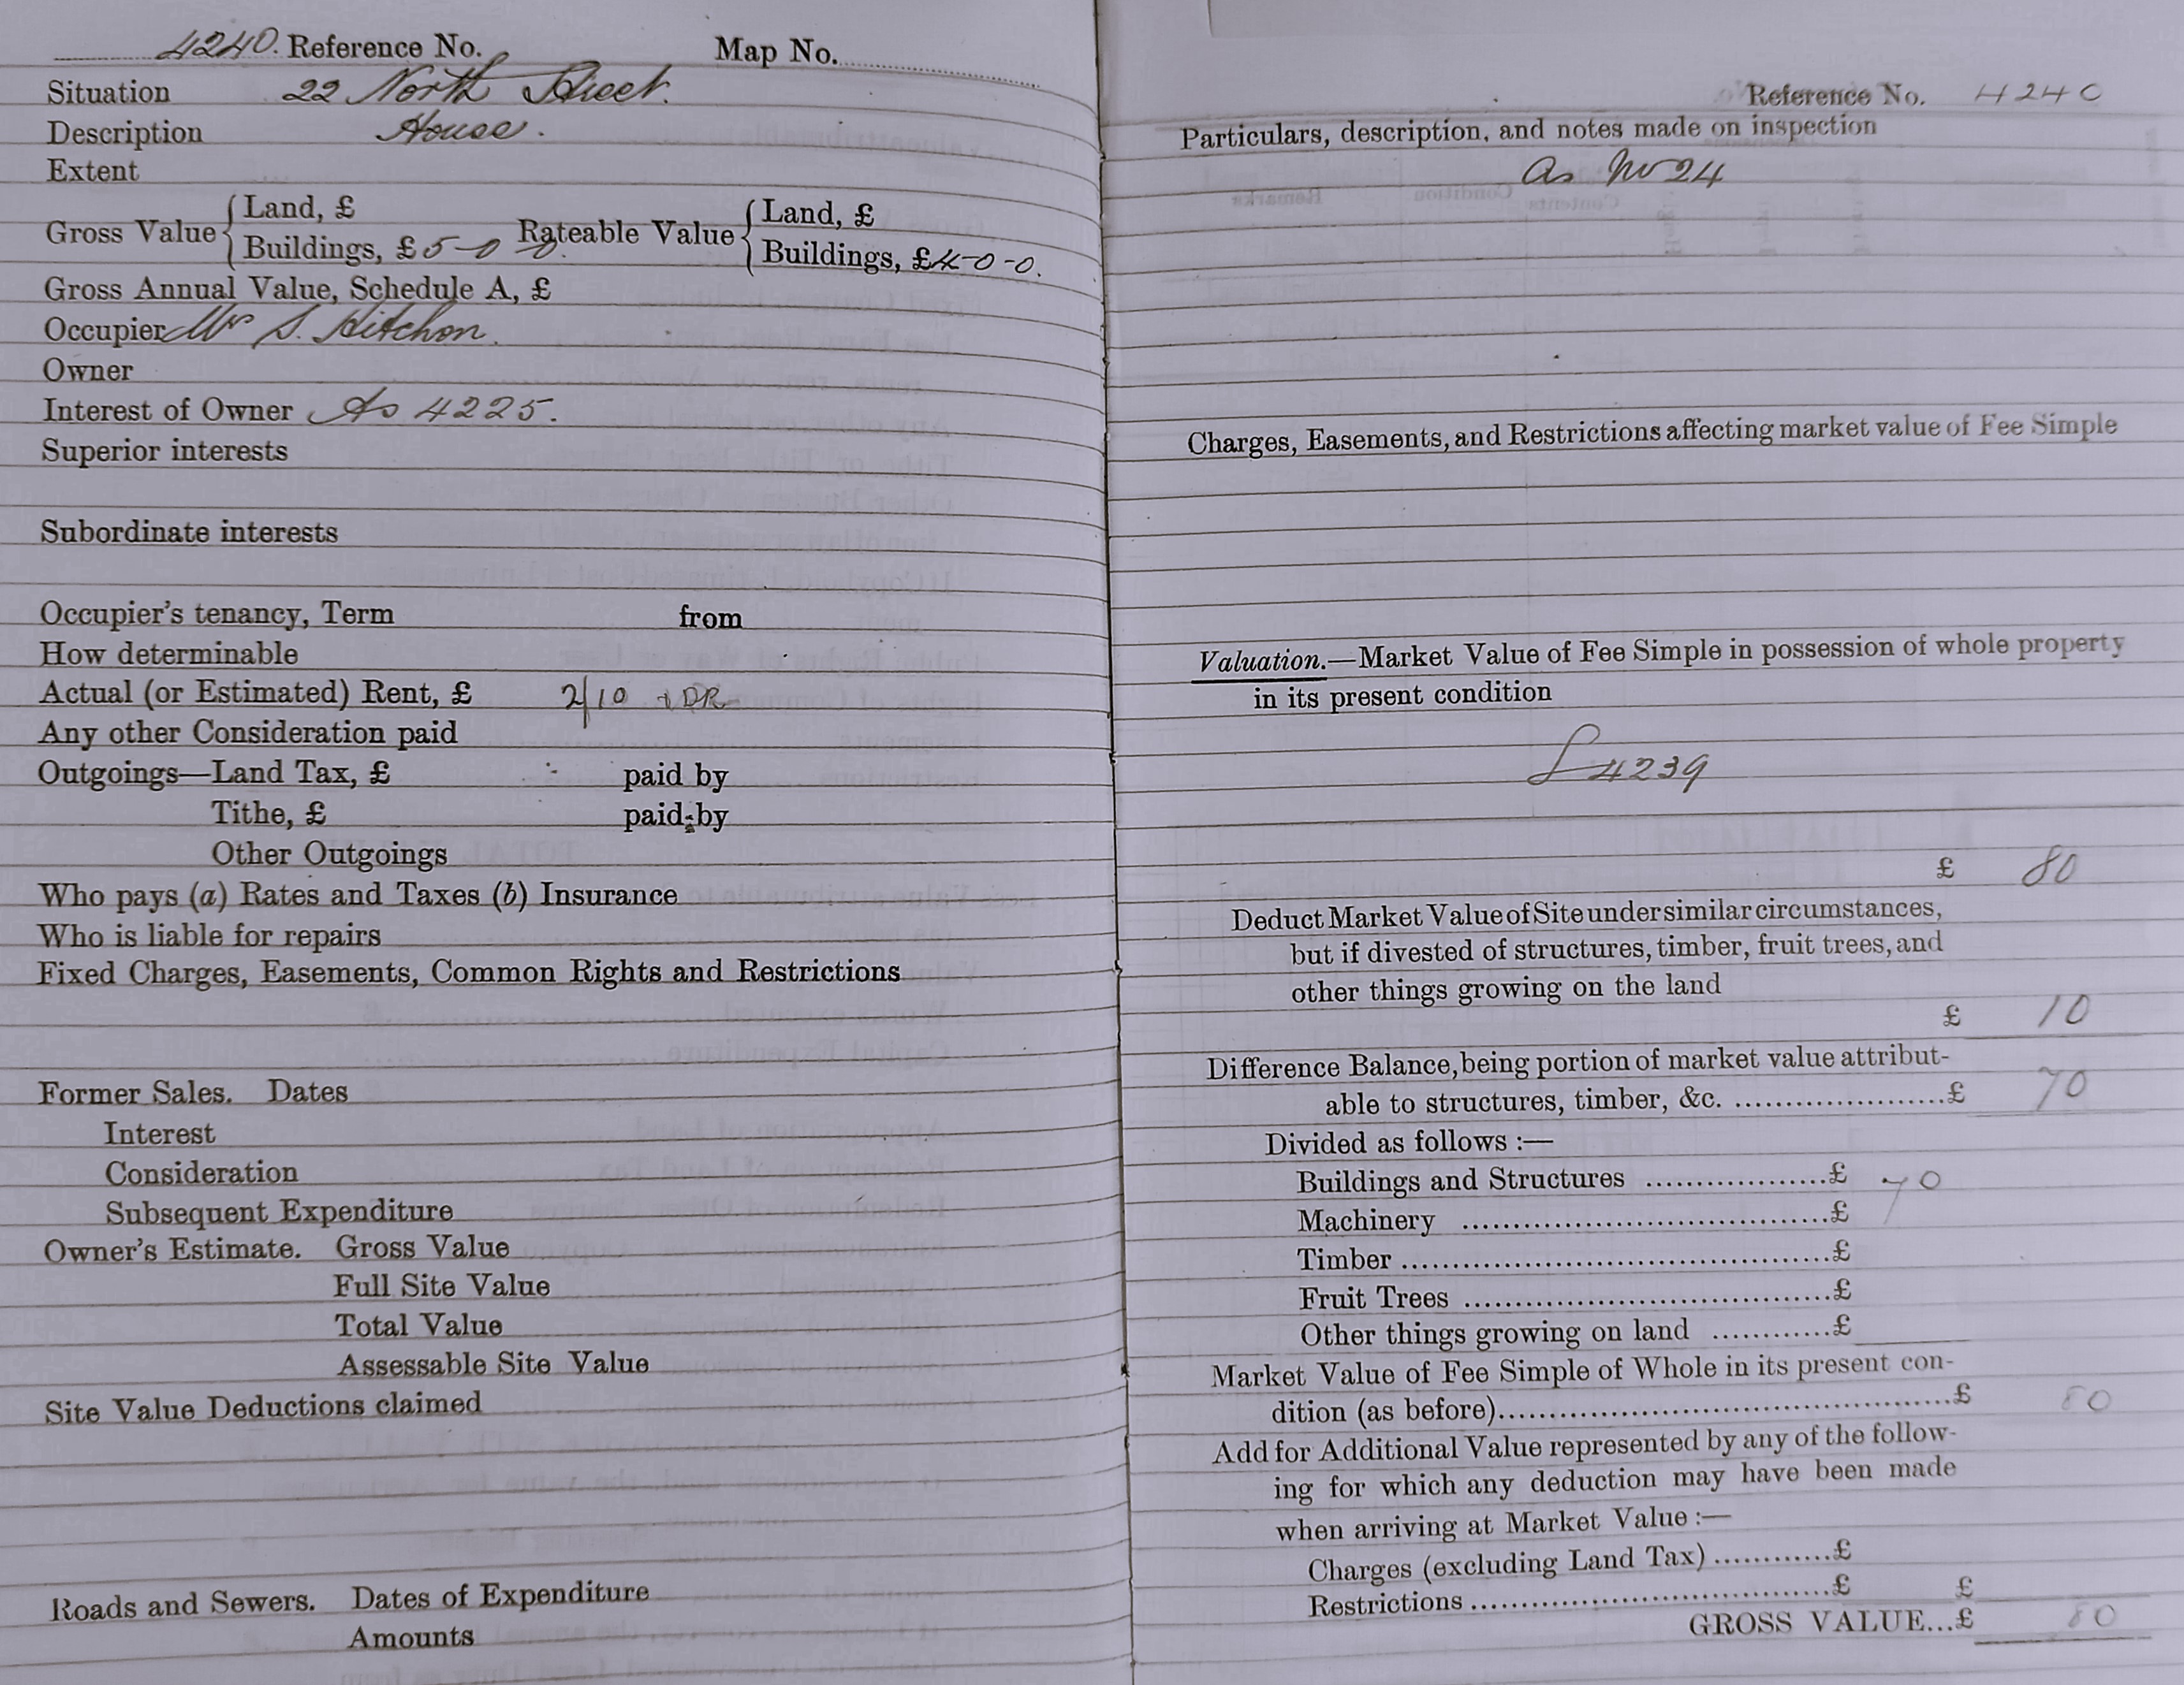 4240. Reference No. Map No.
Situation 22 North Street.
Description House.
Extent
Gross Value { Land, £ Rateable Value { Land, £
Buildings, £5-0-0. Buildings, £4-0-0.
Gross Annual Value, Schedule A, £
Occupier Mr S. Hitchon.
Owner
Interest of Owner As 4225.
Superior interests
Subordinate interests
Occupier's tenancy, Term from
How determinable
Actual (or Estimated) Rent, £ 2/10 + DR
Any other Consideration paid
Outgoings—Land Tax, £ paid by
Tithe, £ paid by
Other Outgoings
Who pays (a) Rates and Taxes (b) Insurance
Who is liable for repairs
Fixed Charges, Easements, Common Rights and Restrictions
Former Sales. Dates
Interest
Consideration
Subsequent Expenditure
Owner's Estimate. Gross Value
Full Site Value
Total Value
Assessable Site Value
Site Value Deductions claimed
Roads and Sewers. Dates of Expenditure
Amounts
Reference No. 4240
Particulars, description, and notes made on inspection
As No 24
Charges, Easements, and Restrictions affecting market value of Fee Simple
Valuation.—Market Value of Fee Simple in possession of whole property
in its present condition
£4239
£ 80
Deduct Market Value of Site under similar circumstances,
but if divested of structures, timber, fruit trees, and
other things growing on the land
£ 10
Difference Balance, being portion of market value attribut-
able to structures, timber, &c. ......................£ 70
Divided as follows :—
Buildings and Structures ..................£ 70
Machinery .....................................£
Timber ...........................................£
Fruit Trees .....................................£
Other things growing on land ............£
Market Value of Fee Simple of Whole in its present con-
dition (as before)..............................................£ 80
Add for Additional Value represented by any of the follow-
ing for which any deduction may have been made
when arriving at Market Value :—
Charges (excluding Land Tax) ............£
Restrictions .....................................£ £
GROSS VALUE...£ 80